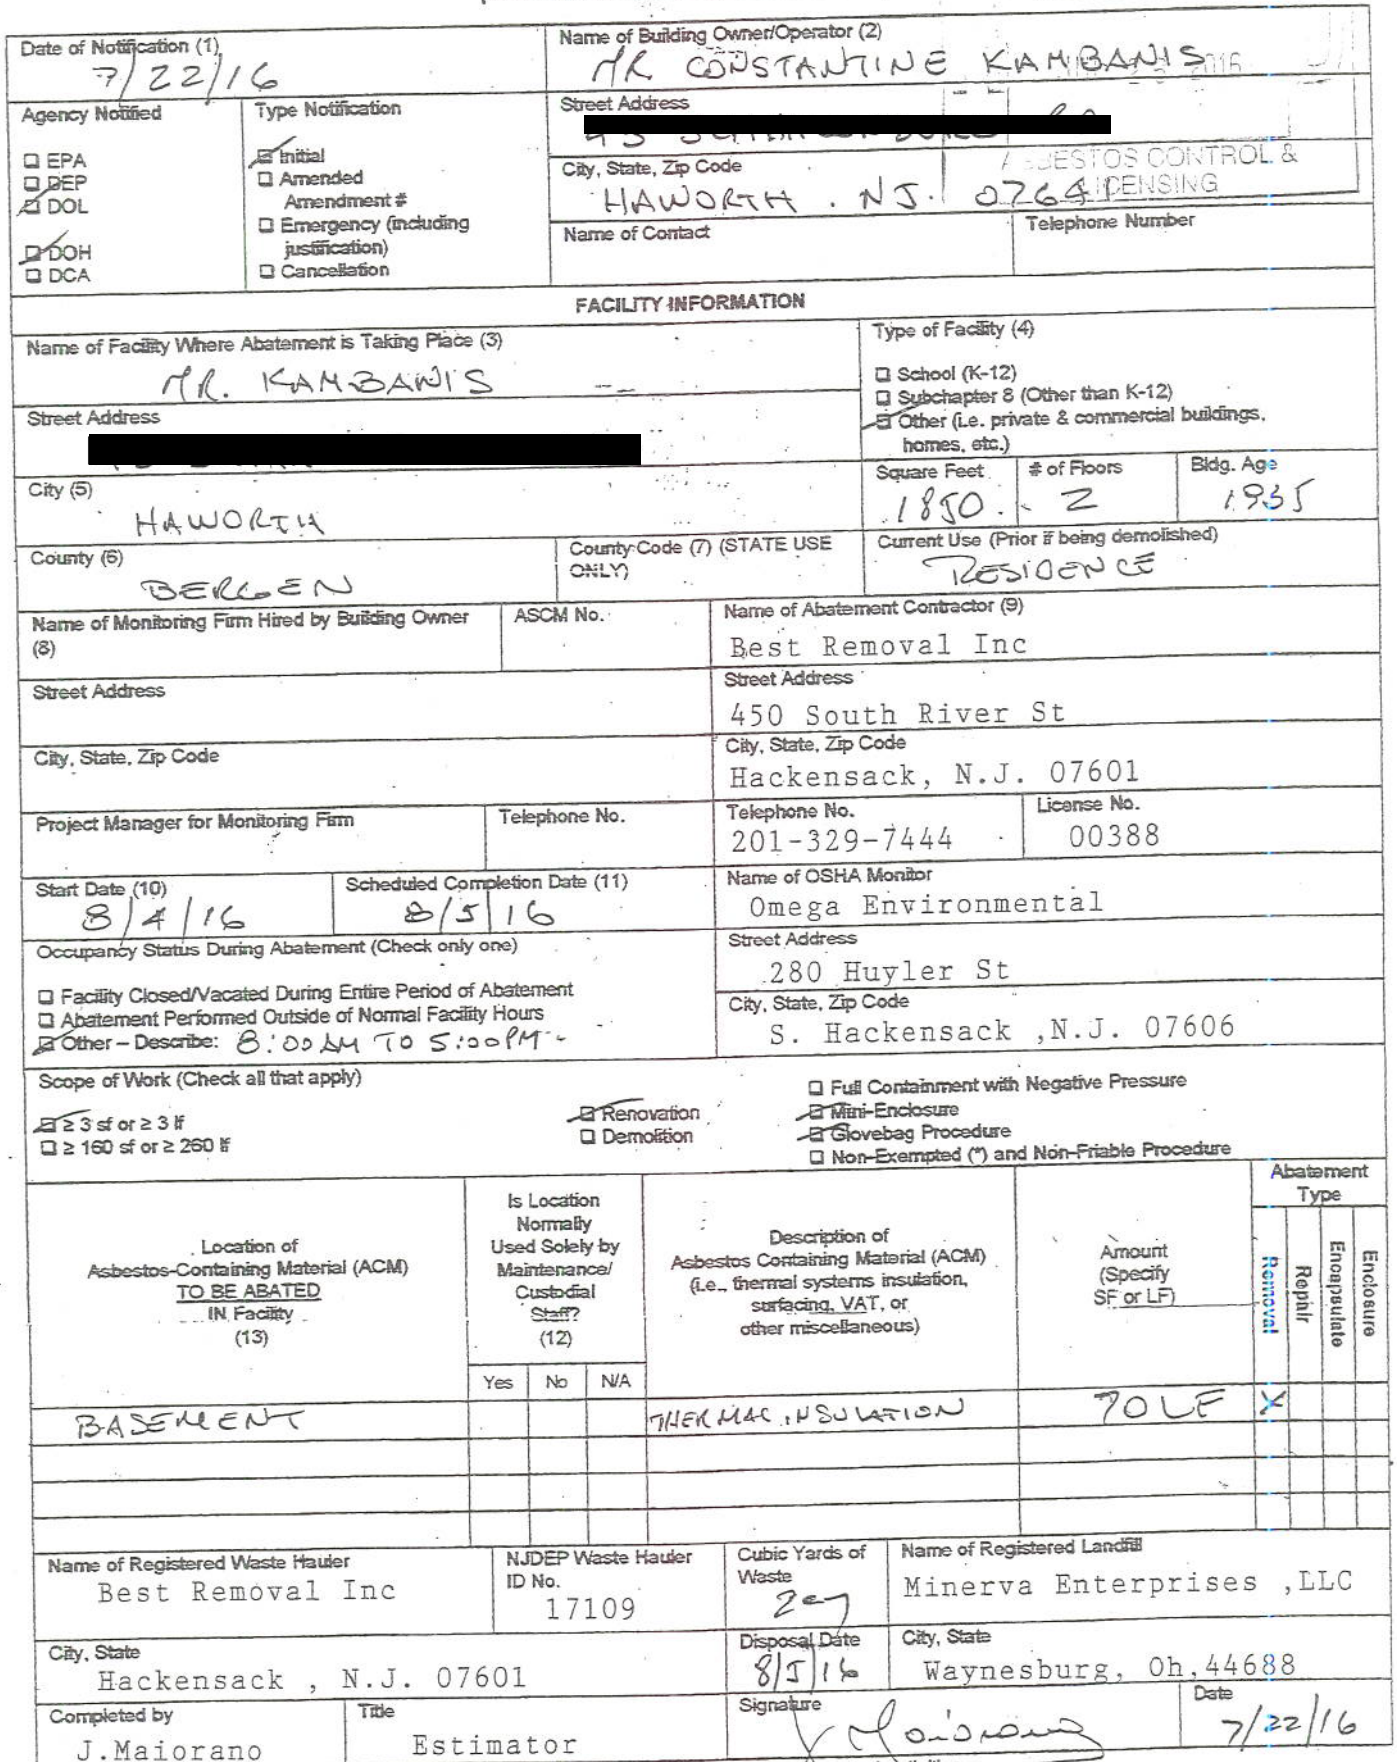 Date of Notification (1)
7/22/16
Name of Building Owner/Operator (2)
MR CONSTANTINE KAMBANIS
2016
Agency Notified
Type Notification
Street Address
EPA
DEP
DOL
DOH
DCA
Initial
Amended
Amendment #
Emergency (including
justification)
Cancellation
City, State, Zip Code
HAWORTH. NJ. 07641
CONTROL &
LICENSING
Name of Contact
Telephone Number
FACILITY INFORMATION
Name of Facility Where Abatement is Taking Place (3)
MR. KAMBANIS
Type of Facility (4)
School (K-12)
Subchapter 8 (Other than K-12)
Other (i.e. private & commercial buildings,
homes, etc.)
Street Address
Square Feet
1850
# of Floors
2
Bldg. Age
1935
City (5)
HAWORTH
County (6)
BERGEN
County Code (7) (STATE USE
ONLY)
Current Use (Prior if being demolished)
RESIDENCE
Name of Monitoring Firm Hired by Building Owner
(8)
ASCM No.
Name of Abatement Contractor (9)
Best Removal Inc
Street Address
Street Address
450 South River St
City, State, Zip Code
City, State, Zip Code
Hackensack, N.J. 07601
Project Manager for Monitoring Firm
Telephone No.
Telephone No.
201-329-7444
License No.
00388
Start Date (10)
8/4/16
Scheduled Completion Date (11)
8/5/16
Name of OSHA Monitor
Omega Environmental
Occupancy Status During Abatement (Check only one)
Facility Closed/Vacated During Entire Period of Abatement
Abatement Performed Outside of Normal Facility Hours
Other – Describe: 8:00AM TO 5:00PM
Street Address
280 Huyler St
City, State, Zip Code
S. Hackensack ,N.J. 07606
Scope of Work (Check all that apply)
≥ 3 sf or ≥ 3 lf
≥ 160 sf or ≥ 260 lf
Renovation
Demolition
Full Containment with Negative Pressure
Mini-Enclosure
Glovebag Procedure
Non-Exempted (*) and Non-Friable Procedure
Location of
Asbestos-Containing Material (ACM)
TO BE ABATED
IN Facility
(13)
Is Location
Normally
Used Solely by
Maintenance/
Custodial
Staff?
(12)
Yes No N/A
Description of
Asbestos Containing Material (ACM)
(i.e., thermal systems insulation,
surfacing, VAT, or
other miscellaneous)
Amount
(Specify
SF or LF)
Abatement
Type
Removal
Repair
Encapsulate
Enclosure
BASEMENT THERMAL INSULATION 70 LF X
Name of Registered Waste Hauler
Best Removal Inc
NJDEP Waste Hauler
ID No.
17109
Cubic Yards of
Waste
2cy
Name of Registered Landfill
Minerva Enterprises ,LLC
City, State
Hackensack , N.J. 07601
Disposal Date
8/5/16
City, State
Waynesburg, Oh,44688
Completed by
J.Maiorano
Title
Estimator
Signature
Maiorano
Date
7/22/16